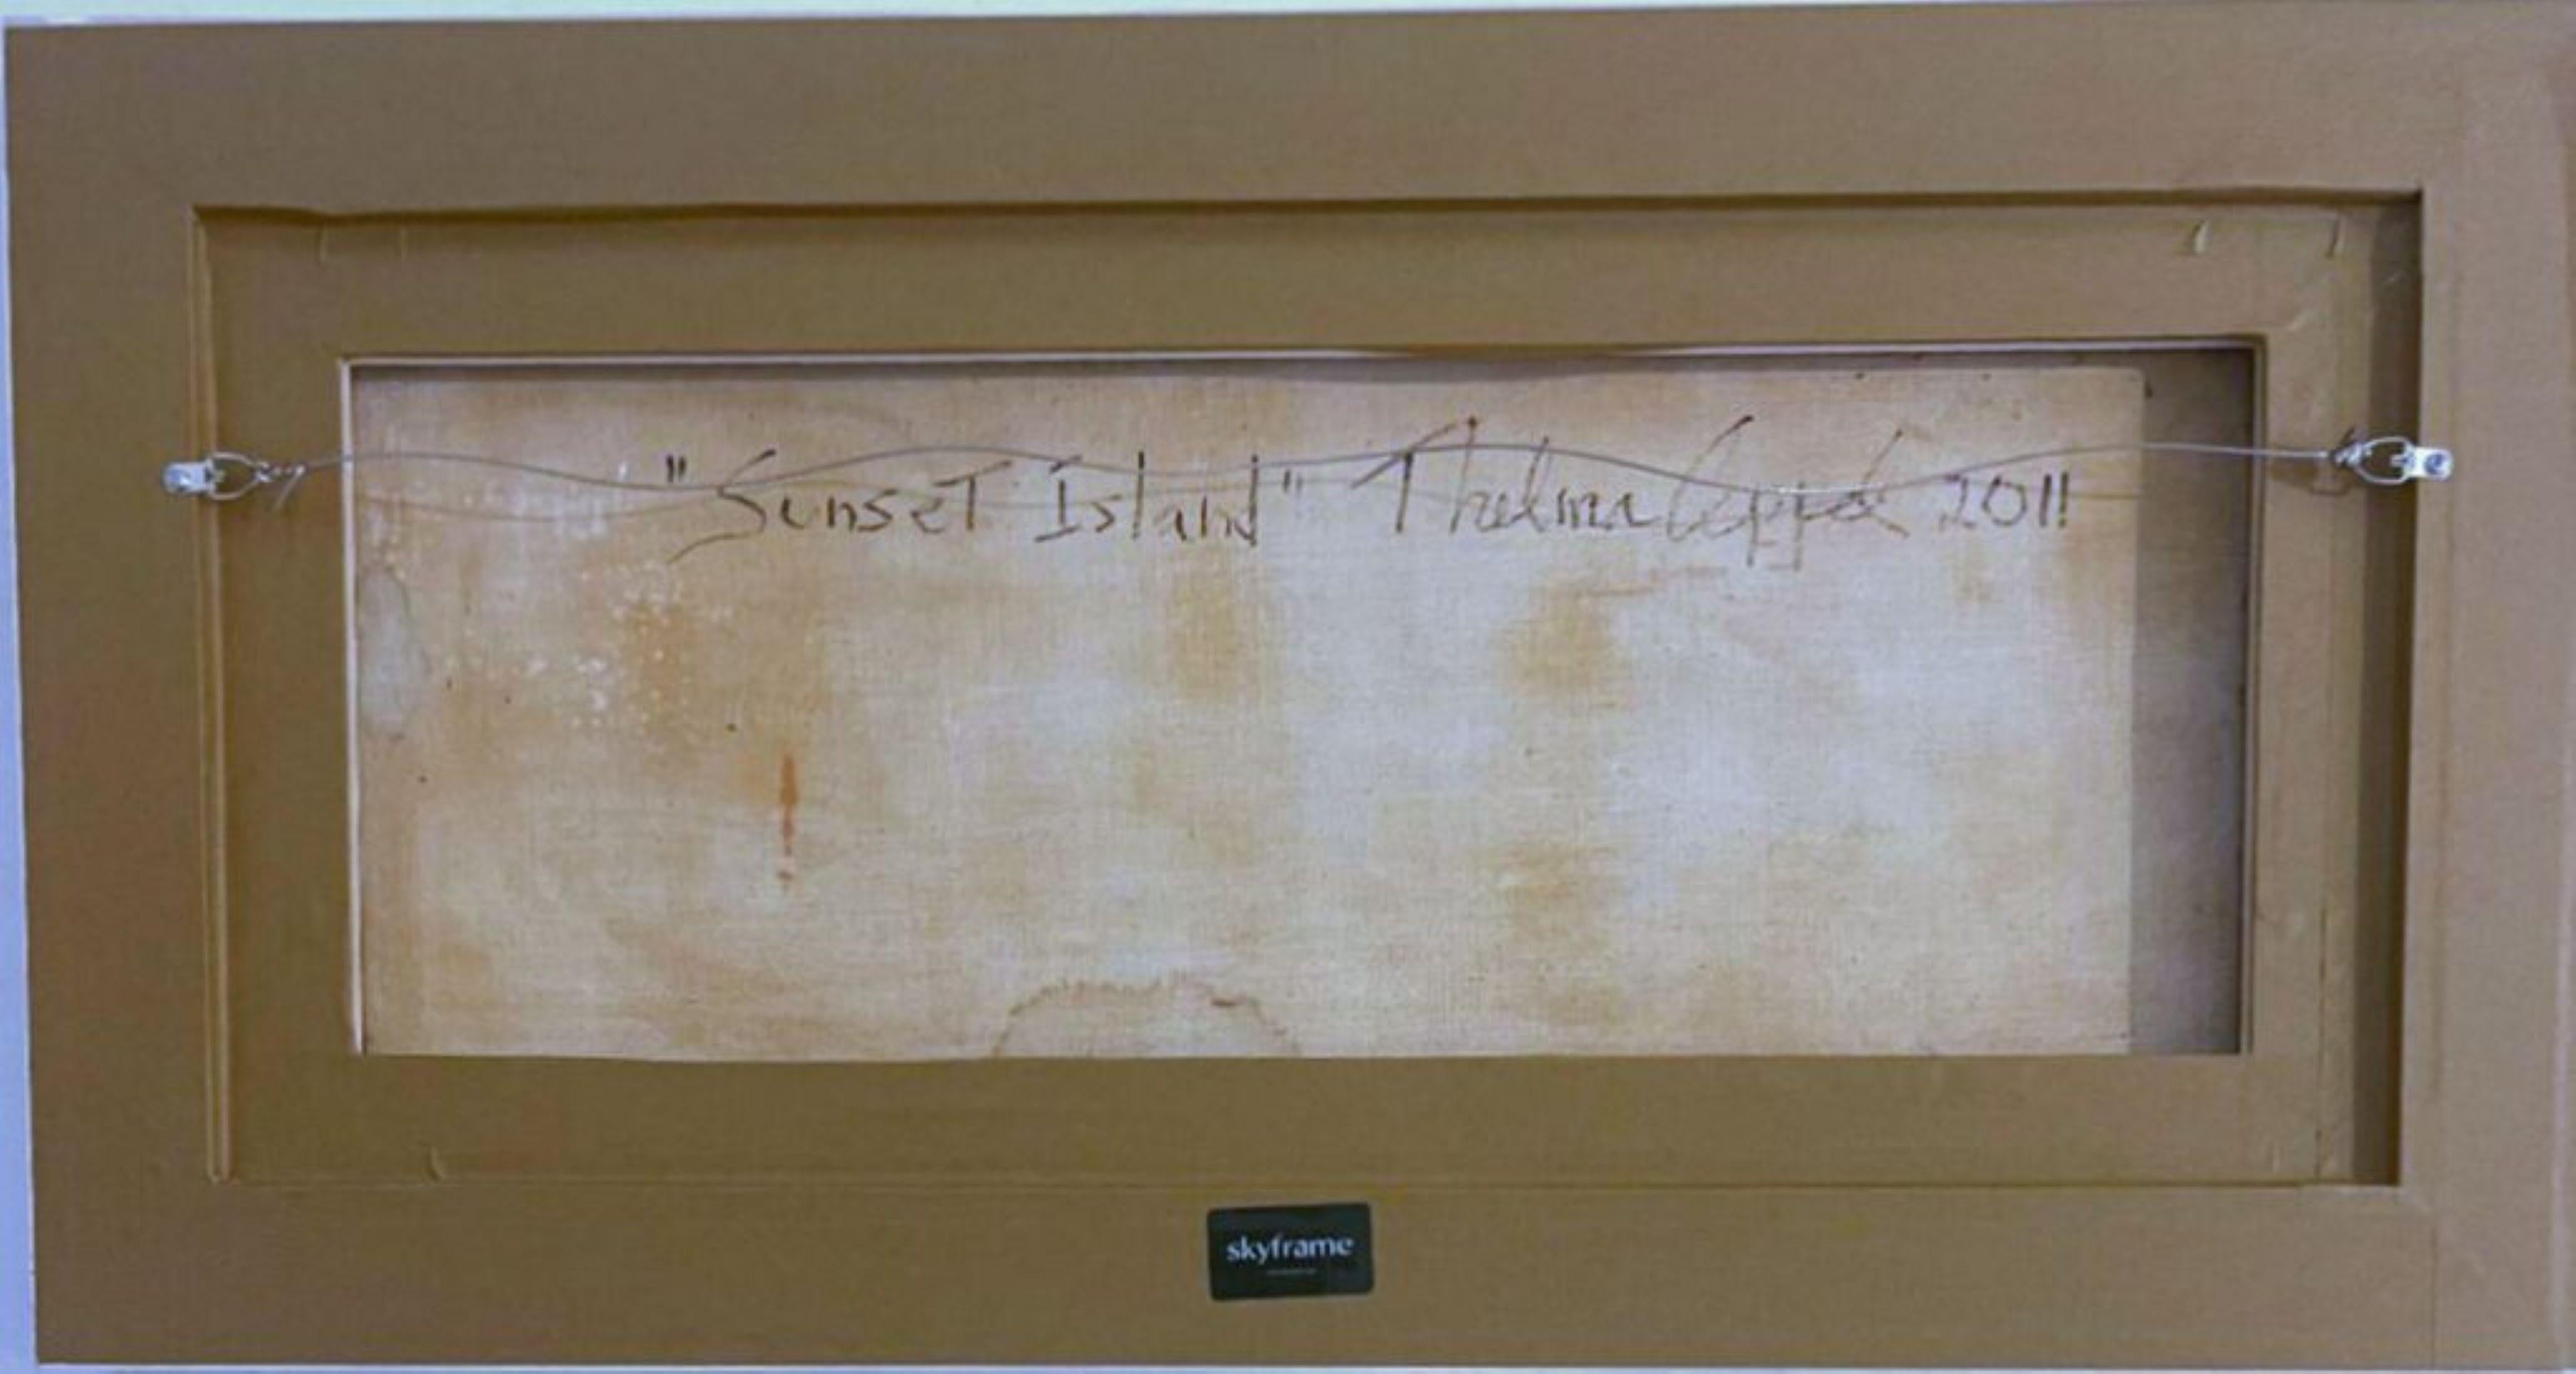 "Sunset Island" Thelma Appel 2011
skyframe